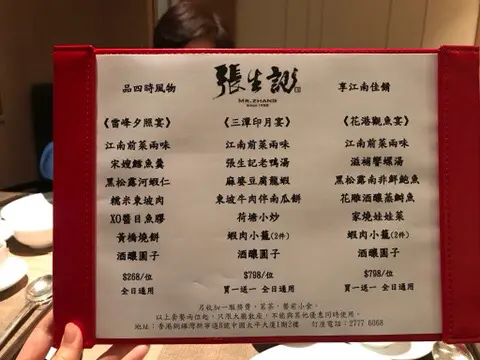 品四時風物
張生記
MR. ZHANG
享江南佳餚
《雷峰夕照宴》
江南前菜兩味
宋嫂鱔魚羹
黑松露河蝦仁
糯米東坡肉
XO醬目魚膠
黃橋燒餅
酒釀圓子
$268/位
全日適用
《三潭印月宴》
江南前菜兩味
張生記老鴨湯
麻婆豆腐龍蝦
東坡牛肉伴南瓜餅
荷塘小炒
蝦肉小籠(2件)
酒釀圓子
$798/位
買一送一 全日適用
《花港觀魚宴》
江南前菜兩味
滋補響螺湯
黑松露南非鮮鮑魚
花雕酒釀蒸鰣魚
家燒娃娃菜
蝦肉小籠(2件)
酒釀圓子
$798/位
買一送一 全日適用
另收加一服務費，茗茶，餐前小食。
以上套餐兩位起，只限大廳散座，不能與其他優惠同時使用。
地址：香港銅鑼灣新寧道8號中國太平大廈1期2樓 訂座電話：2777 6068